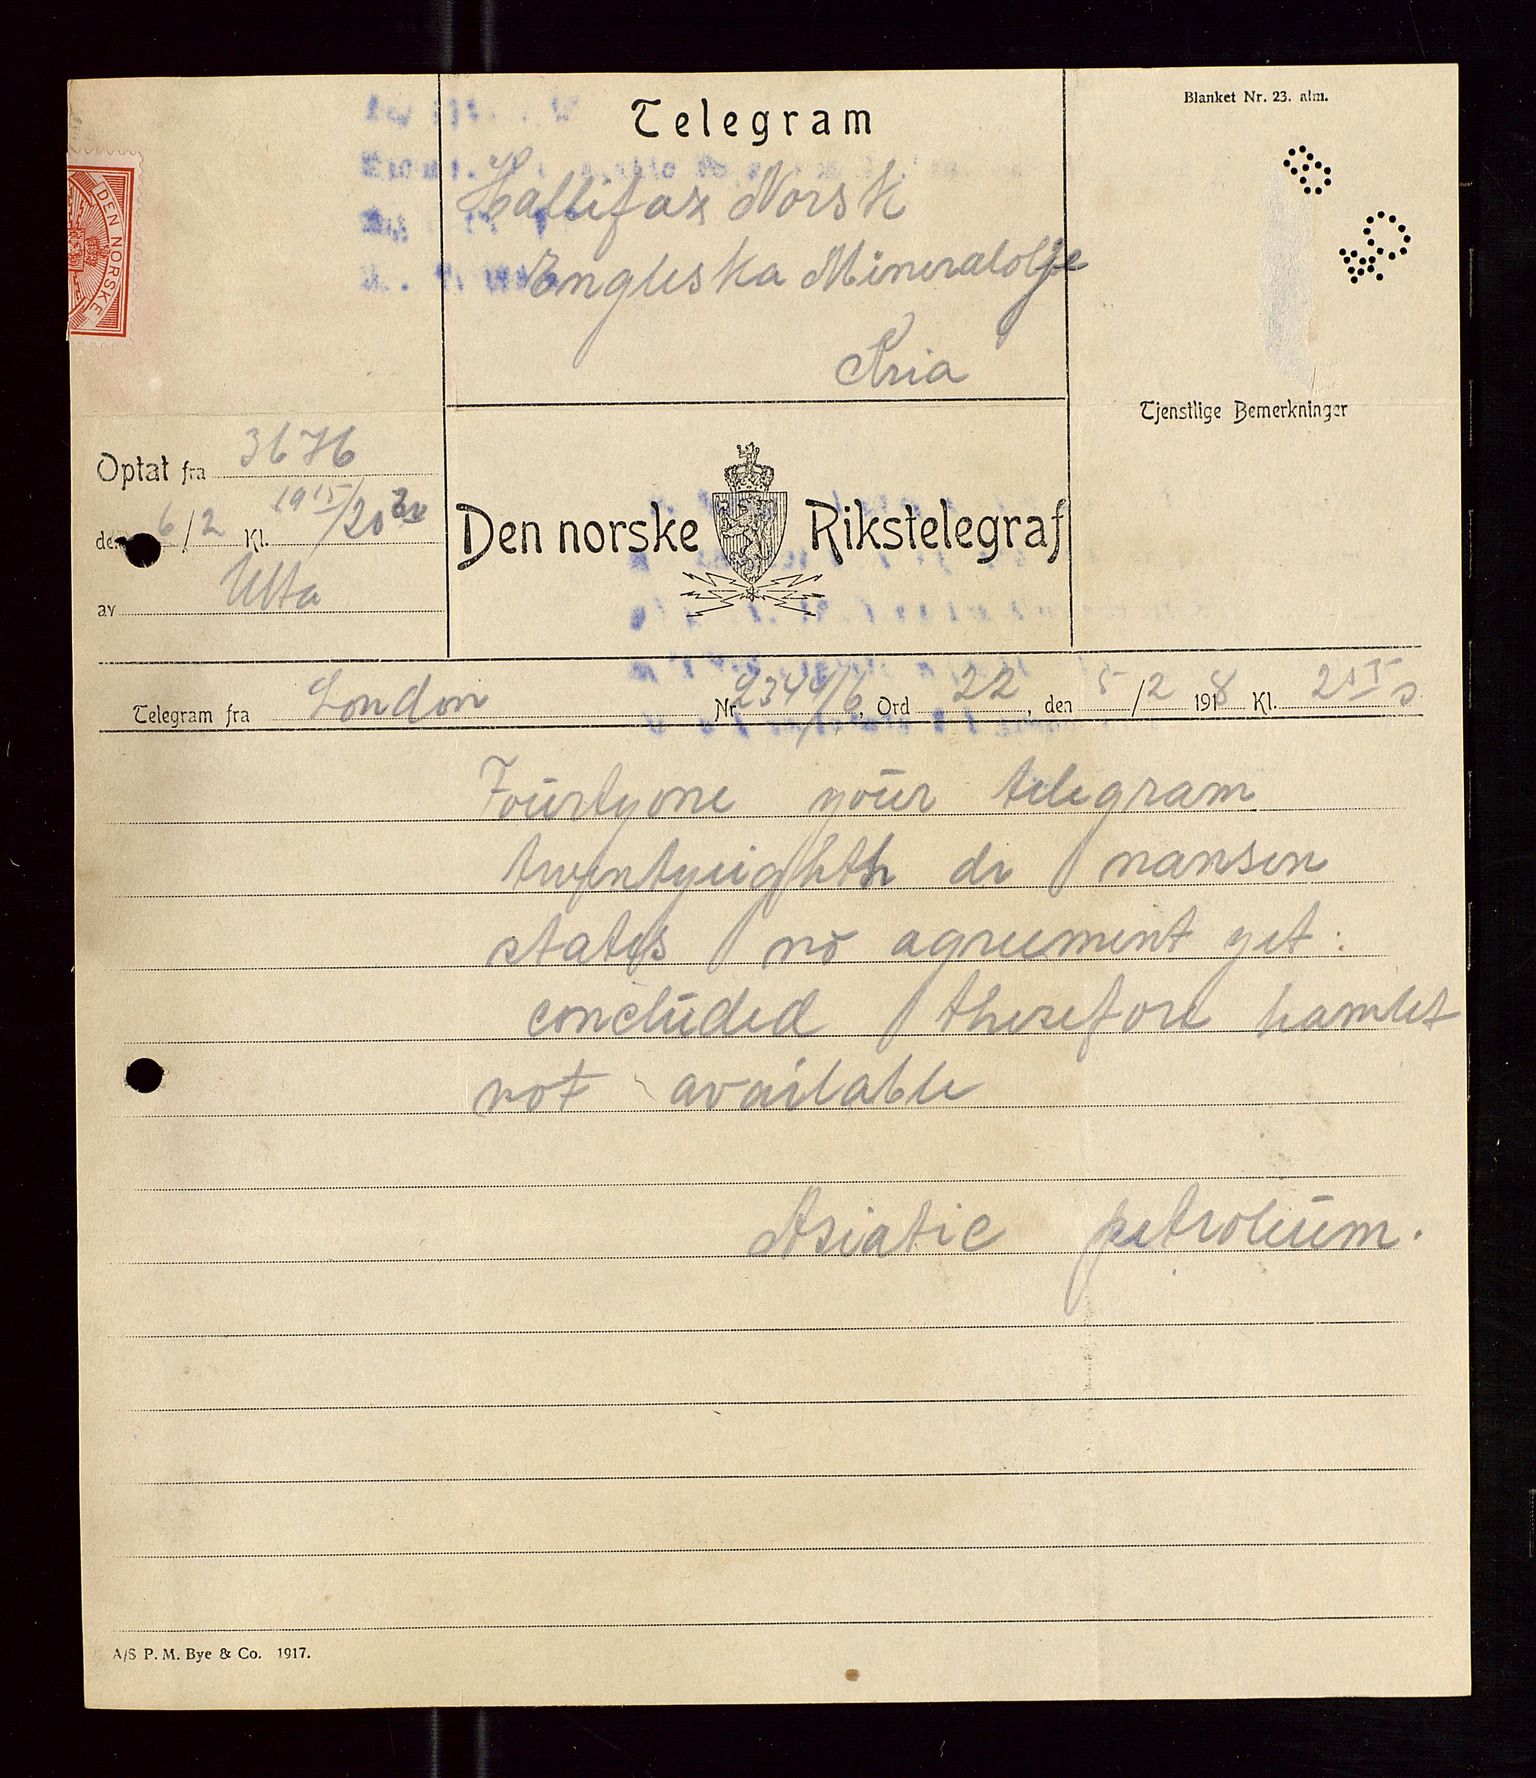 Blanket Nr. 23. alm.
Telegram
Hallifax Norsk
Engleska Mineralolje
Kria
DEN NORSKE
Tjenstlige Bemerkninger
Optat fra 3676
den 6/2 Kl. 19 15/20 20
av Utta
Den norske Rikstelegraf
Telegram fra London Nr. 2344/6, Ord 22, den 5/2 1918 Kl. 21 15 s
Fourtyone your telegram
twentyeighth dr nansen
states no agreement yet
concluded therefore hamlet
not available
Asiatic petroleum.
A/S P. M. Bye & Co. 1917.